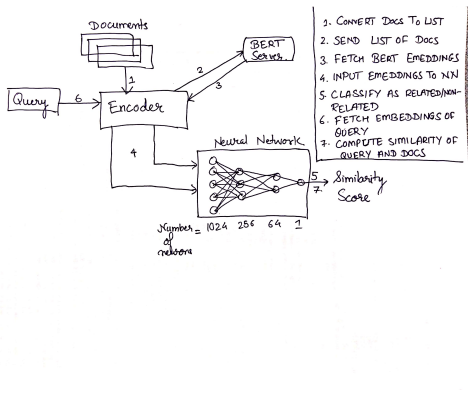 Documents
BERT
Server
1
2
3
Query
6
Encoder
4
Neural Network
5
7.
Similarity
Score
Number
of
neurons
= 1024 256 64 1
1. CONVERT DOCS TO LIST
2. SEND LIST OF DOCS
3. FETCH BERT EMEDDINGS
4. INPUT EMEDDINGS TO NN
5. CLASSIFY AS RELATED/NON-
RELATED
6. FETCH EMBEDDINGS OF
QUERY
7. COMPUTE SIMILARITY OF
QUERY AND DOCS